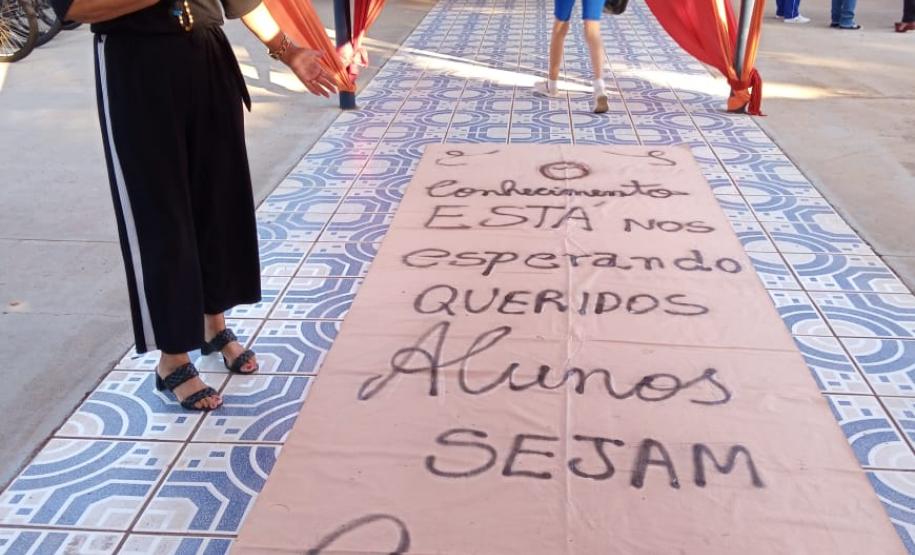 O
Conhecimento
ESTÁ NOS
esperando
QUERIDOS
Alunos
SEJAM